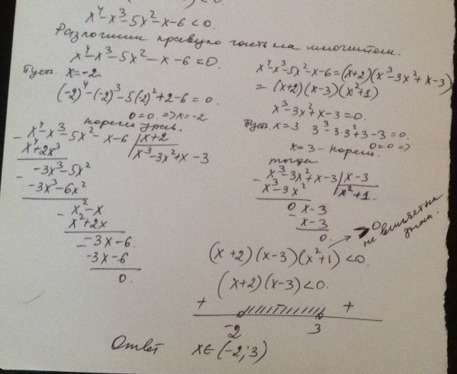 x⁴-x³-5x²-x-6<0.
Разложим правую часть на множители.
x⁴-x³-5x²-x-6=0.
Пусть x=-2
(-2)⁴-(-2)³-5(-2)²+2-6=0.
0=0. => x=-2
корень урав.
- x⁴-x³-5x²-x-6 | x+2
x⁴+2x³ | x³-3x²+x-3
- -3x³-5x²
-3x³-6x²
- x²-x
x²+2x
- -3x-6
-3x-6
0.
x⁴-x³-5x²-x-6=(x+2)(x³-3x²+x-3)
=(x+2)(x-3)(x²+1)
x³-3x²+x-3=0.
Пусть x=3 3³-3·3²+3-3=0.
0=0 =>
x=3-корень
тогда
- x³-3x²+x-3 | x-3
x³-3x² | x²+1.
0 x-3
- x-3
0.
(x+2)(x-3)(x²+1)<0
>0 не влияет на знак.
(x+2)(x-3)<0.
+ +
-2 3
Ответ x∈(-2;3)